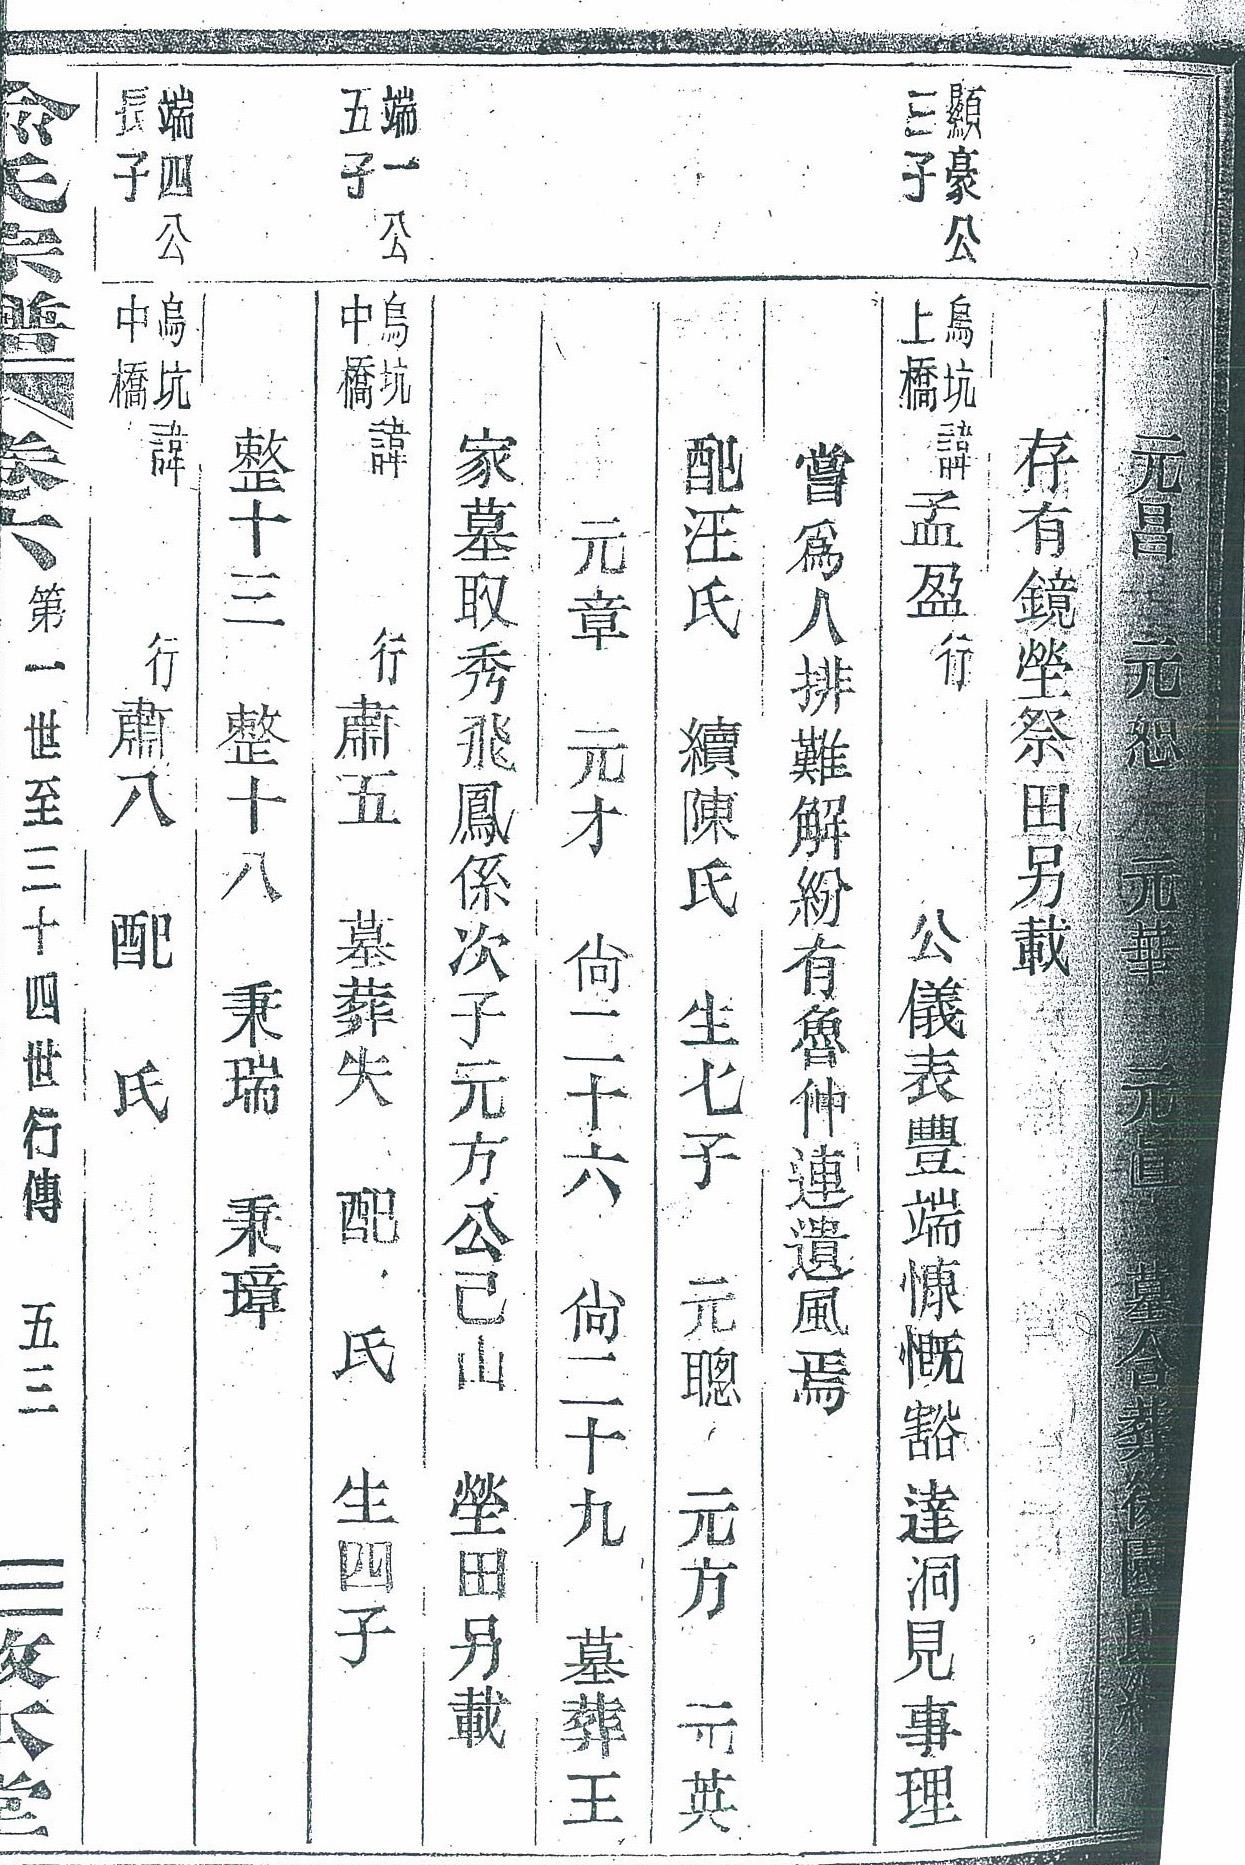 元昌 元恕 元華 元直 墓合葬
存有鏡塋祭田另載
顯豪公三子
烏坑上橋諱孟盈行 公儀表豐端慷慨豁達洞見事理
嘗爲人排難解紛有魯仲連遺風焉
配汪氏 續陳氏 生七子 元聰 元方 元英
元章 元才 尙二十六 尙二十九 墓葬王
家墓取秀飛鳳係次子元方公己山 塋田另載
端一公五子
烏坑中橋諱 行肅五 墓葬失 配 氏 生四子
整十三 整十八 秉瑞 秉璋
端四公長子
烏坑中橋諱 行肅八 配 氏
俞氏宗譜 卷六 第一世至三十四世行傳 五三 三 敦本堂